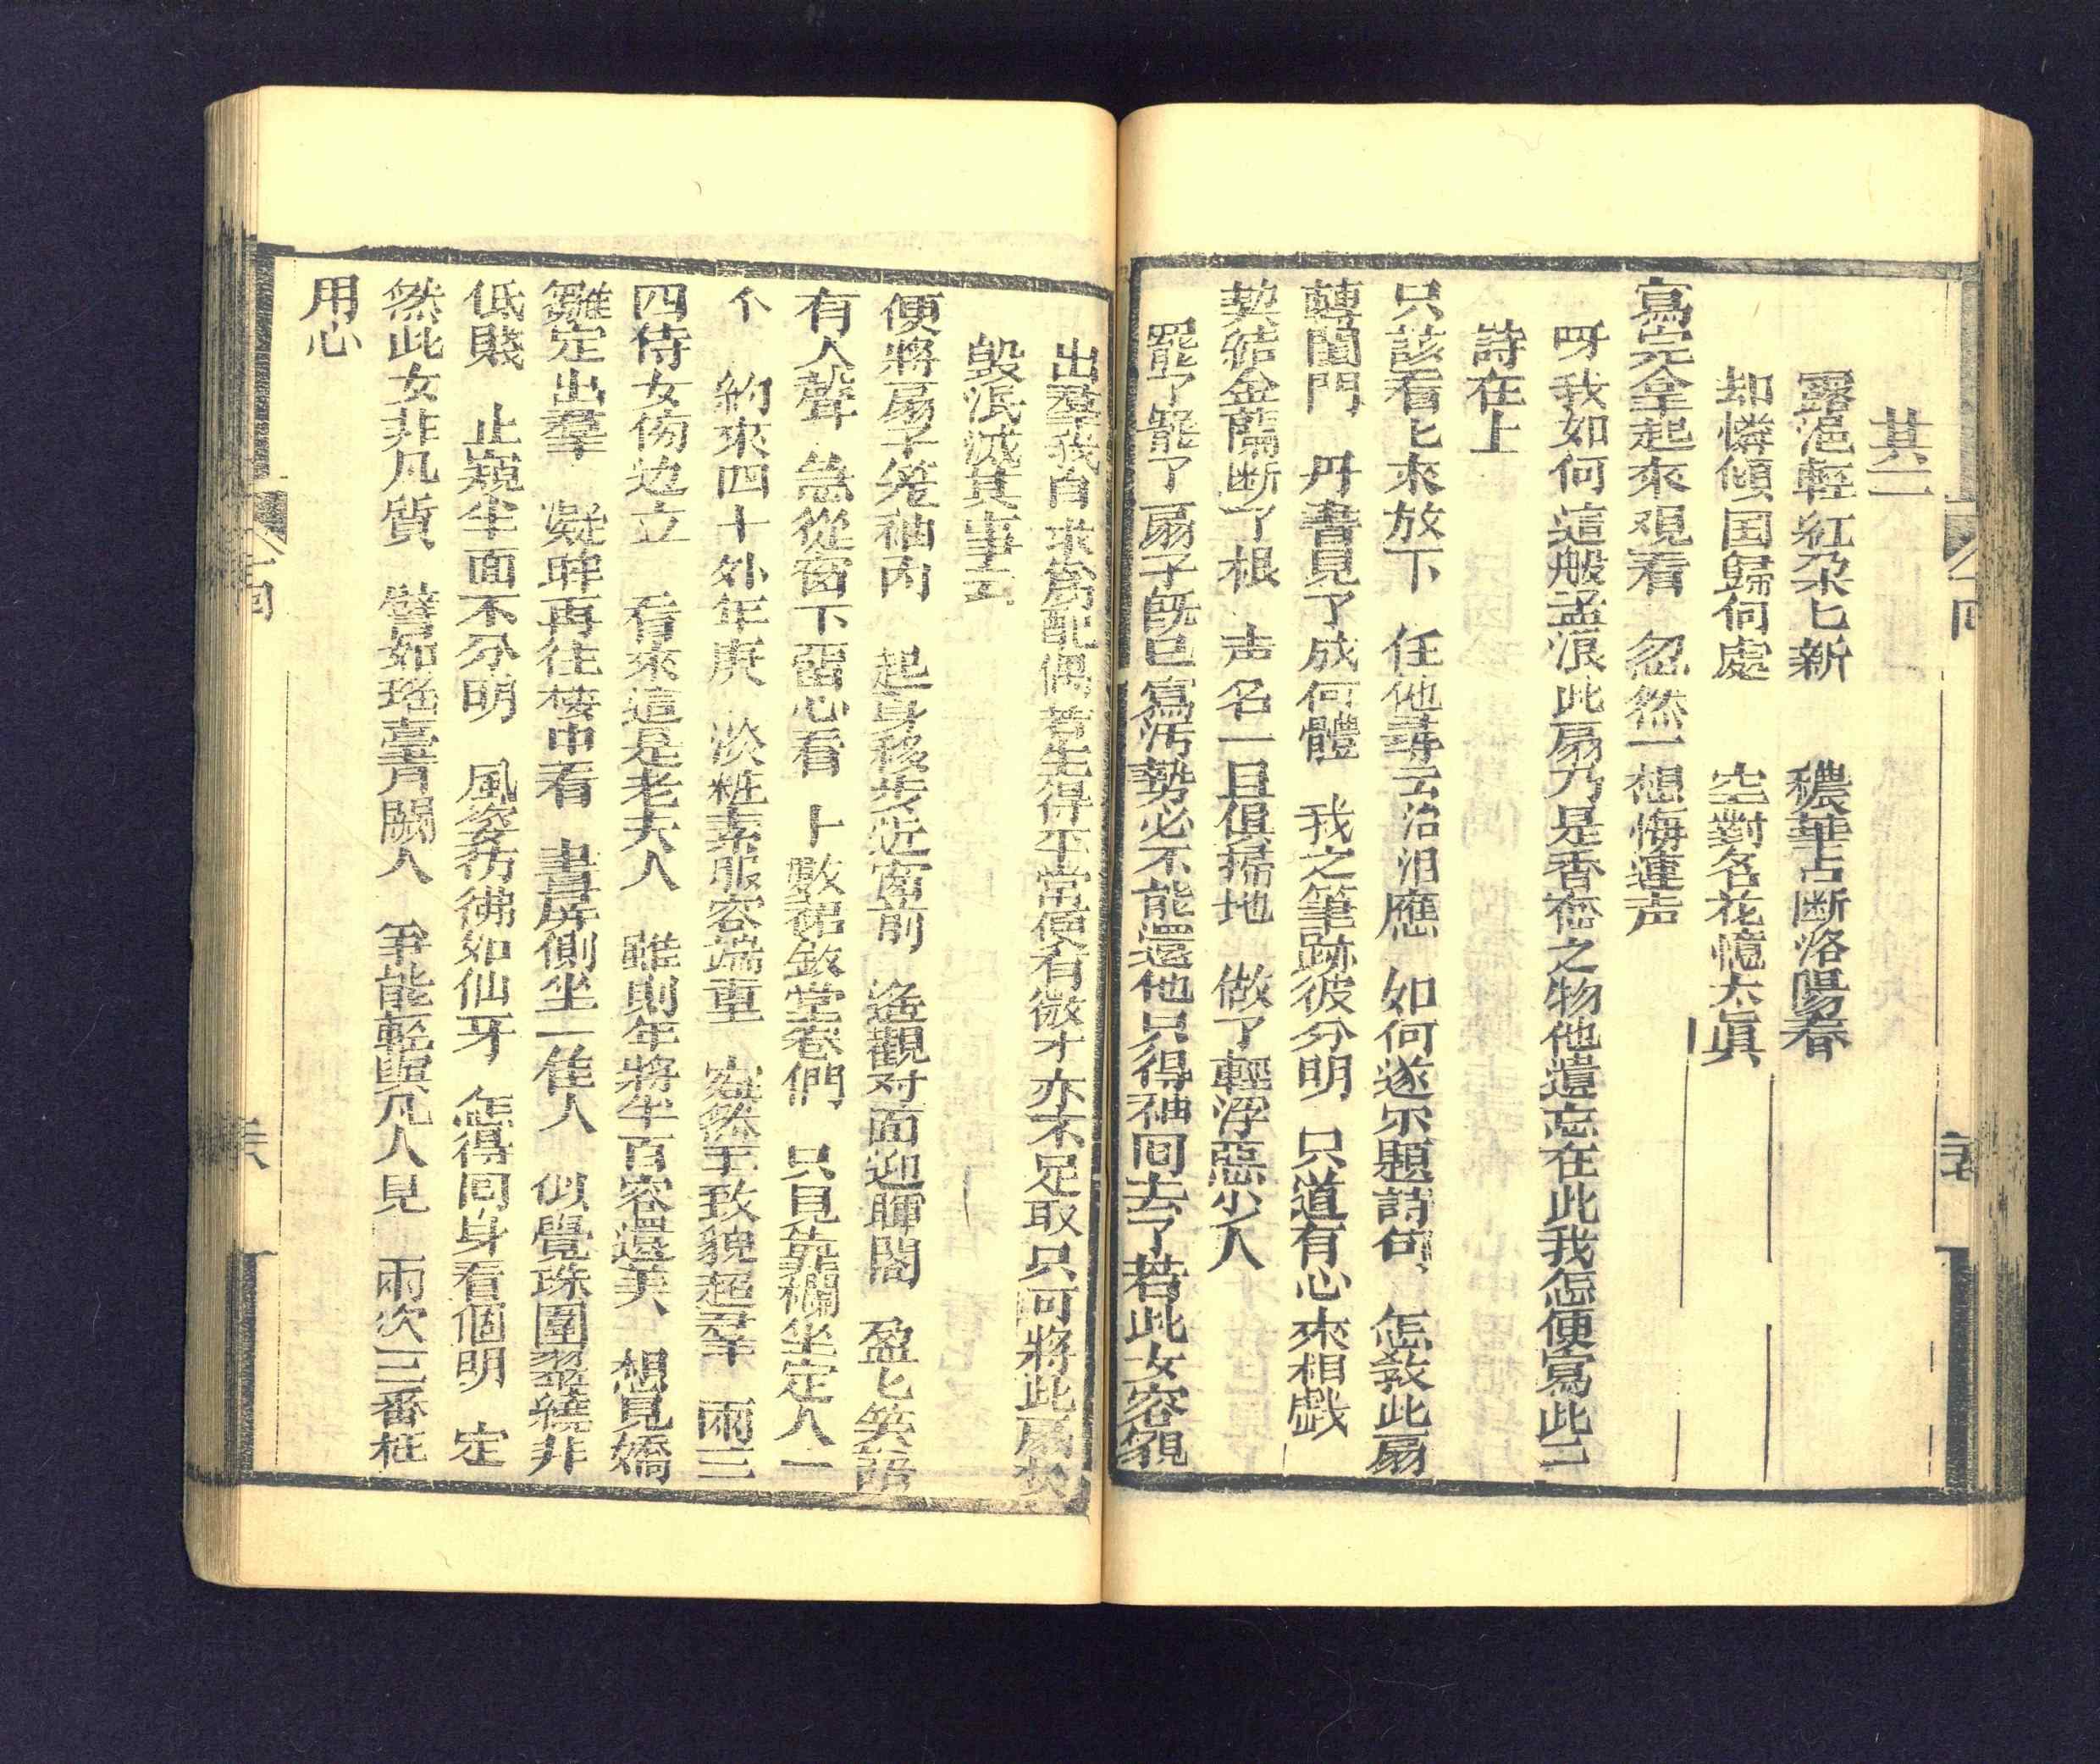 其二
露浥輕紅朶匕新　穠華占断洛陽春
却憐傾国歸何處　空對名花憶太眞
寫完拿起來观看　忽然一想悔連声
呀我如何這般孟浪此扇乃是香奁之物他遺忘在此我怎便寫此二
詩在上
只該看匕來放下　任他尋云治汨應　如何遂尔題詩句　怎敎此扇
轉閨門　丹書見了成何體　我之筆跡彼分明　只道有心來相戲
契結金蘭断了根　声名一旦俱掃地　做了輕浮惡少人
罷了罷了扇子既已寫汚勢必不能還他只得袖囘去了若此女容貌
出羣我自求爲配偶若生得平常便有微才亦不足取只可將此扇焚
毀泯滅其事云
便將扇子笼袖内　起身移步近窗前　遙觀对面迎暉閣　盈匕笑語
有人聲　急從窗下畱心看　上數裙釵堂巻們　只見靠欄坐定人一
个　約來四十外年庚　淡粧素服容端重　安然玉致貌超羣　兩三
四侍女傍边立　看來這是老夫人　雖則年將半百容還美　想見嬌
雛定出羣　凝眸再往楼中看　書房側坐一佳人　似覺珠圍翠繞非
低賤　止窺半面不分明　風姿彷彿如仙牙　怎得囘身看個明　定
然此女非凡質　譬如瑤臺青闕人　爭能輕與凡人見　兩次三番枉
用心